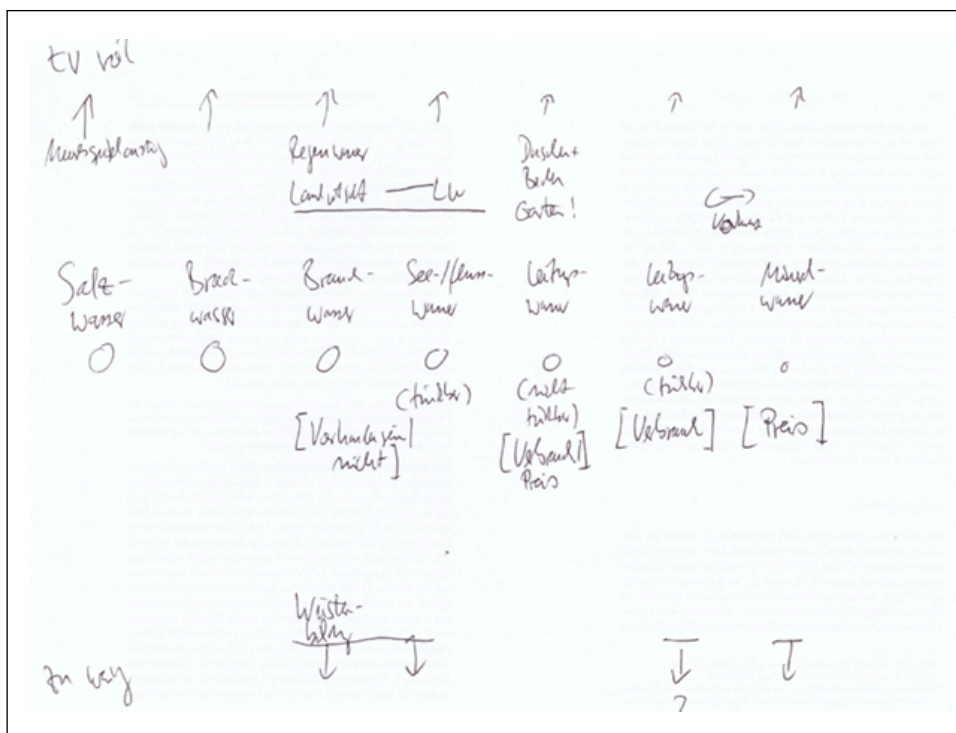 zu viel
Meeresspiegelanstieg
Regenwasser
Landwirtschaft — LW
Duschen +
Baden
Garten!
Salz-
wasser
Brack-
wasser
Brauch-
wasser
See-/Fluss-
wasser
Leitungs-
wasser
Leitungs-
wasser
Mineral-
wasser
(trinkbar)
[Vorhandensein/
nicht]
(nicht
trinkbar)
[Verbrauch/]
Preis
(trinkbar)
[Verbrauch]
[Preis]
Wüsten-
bildung
zu wenig
?